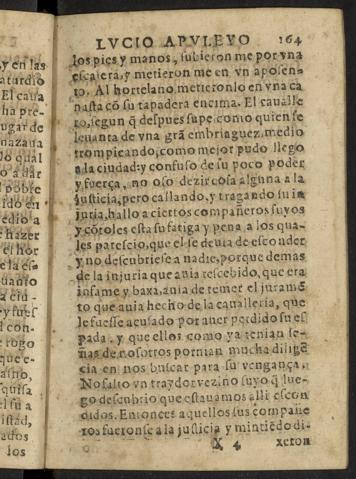 LVCIO APVLEYO 164
los pies y manos, subieron me por vna
escalera, y metieron me en vn aposen-
to. Al hortelano metieronlo en vna ca
nasta cō su tapadera encima. El cauālle
ro, segun q̄ despues supe como quien se
leuanta de vna grā embriaguez, medio
trompicando, como mejor pudo llego
a la ciudad: y confuso de su poco poder
y fuerça, no oso dezir cosa alguna a la
justicia, pero callando, y tragando su in
juria, hallo a ciertos compañeros suyos
y cōtoles esta su fatiga y pena a los qua-
les parescio, que el se deuia de esconder
y no descubriese a nadie, porque demas
de la injuria que auia rescebido, que era
infame y baxa, auia de temer el juramē
to que auia hecho de la caualleria, que
le fuesse acusado por auer perdido su es
pada. y que ellos como ya tenian se-
ñas de nosotros pornian mucha diligē
cia en nos buscar para su vengança.
No falto vn traydor vezino suyo q̄ lue-
go descubrio que estauamos alli escon
didos. Entonces aquellos sus compañe
ros fueronse a la justicia y mintiēdo di-
X 4 xeron
y en las
aturdio
El caua
ha pre-
ugar de
nazaua
lo qual
o a dar
l pobre
ido en
edio a
e hazer
el hor
e la es-
uanto
a ciu-
y fues
l con-
e rogo
que e-
asno,
quisa
el su a
istad,
ados
los